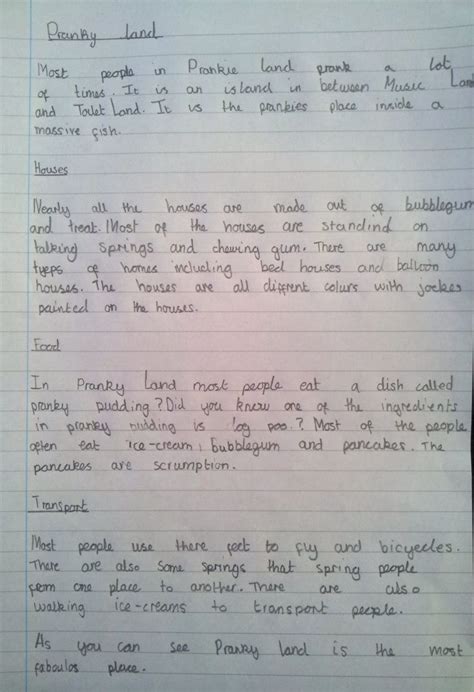 Pranky land
Most people in Prankie land prank a lot
of times. It is an island in between Music Land
and Toilet Land. It is the prankies place inside a
massive fish.
Houses
Nearly all the houses are made out of bubblegum
and treat. Most of the houses are standind on
talking springs and chewing gum. There are many
typps of homes including bed houses and balloon
houses. The houses are all different colurs with jockes
painted on the houses.
Food
In Pranky Land most people eat a dish called
pranky pudding? Did you know one of the ingredients
in pranky pudding is log poo.? Most of the people
often eat ice-cream, bubblegum and pancakes. The
pancakes are scrumption.
Transport
Most people use there feet to fly and bicyecles.
There are also some springs that spring people
form one place to another. There are also
walking ice-creams to transport people.
As you can see Pranky land is the most
fabulos place.